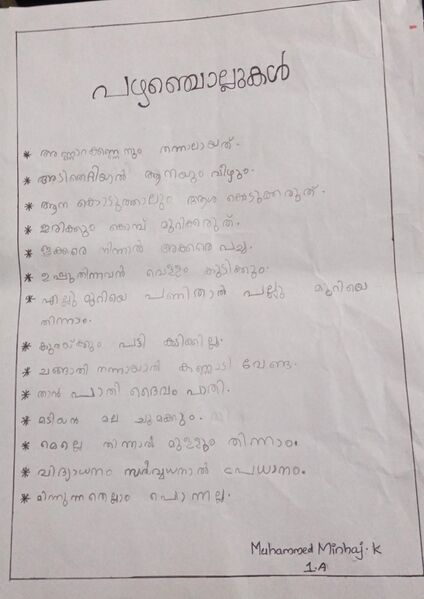 പഴഞ്ചൊല്ലുകൾ
* അണ്ണാറക്കണ്ണനും തന്നാലായത്.
* അടിതെറ്റിയാൽ ആനയും വീഴും.
* ആന കൊടുത്താലും ആശ കൊടുക്കരുത്.
* ഇരിക്കും കൊമ്പ് മുറിക്കരുത്.
* ഇക്കരെ നിന്നാൽ അക്കരെ പച്ച.
* ഉപ്പുതിന്നവൻ വെള്ളം കുടിക്കും.
* എല്ലു മുറിയെ പണിതാൽ പല്ലു മുറിയെ
തിന്നാം.
* കുരയ്ക്കും പട്ടി കടിക്കില്ല.
* ചങ്ങാതി നന്നായാൽ കണ്ണാടി വേണ്ട.
* താൻ പാതി ദൈവം പാതി.
* മടിയൻ മല ചുമക്കും.
* മെല്ലെ തിന്നാൽ മുള്ളും തിന്നാം.
* വിദ്യാധനം സർവ്വധനാൽ പ്രധാനം.
* മിന്നുന്നതെല്ലാം പൊന്നല്ല.
Muhammed Minhaj.K
1.A